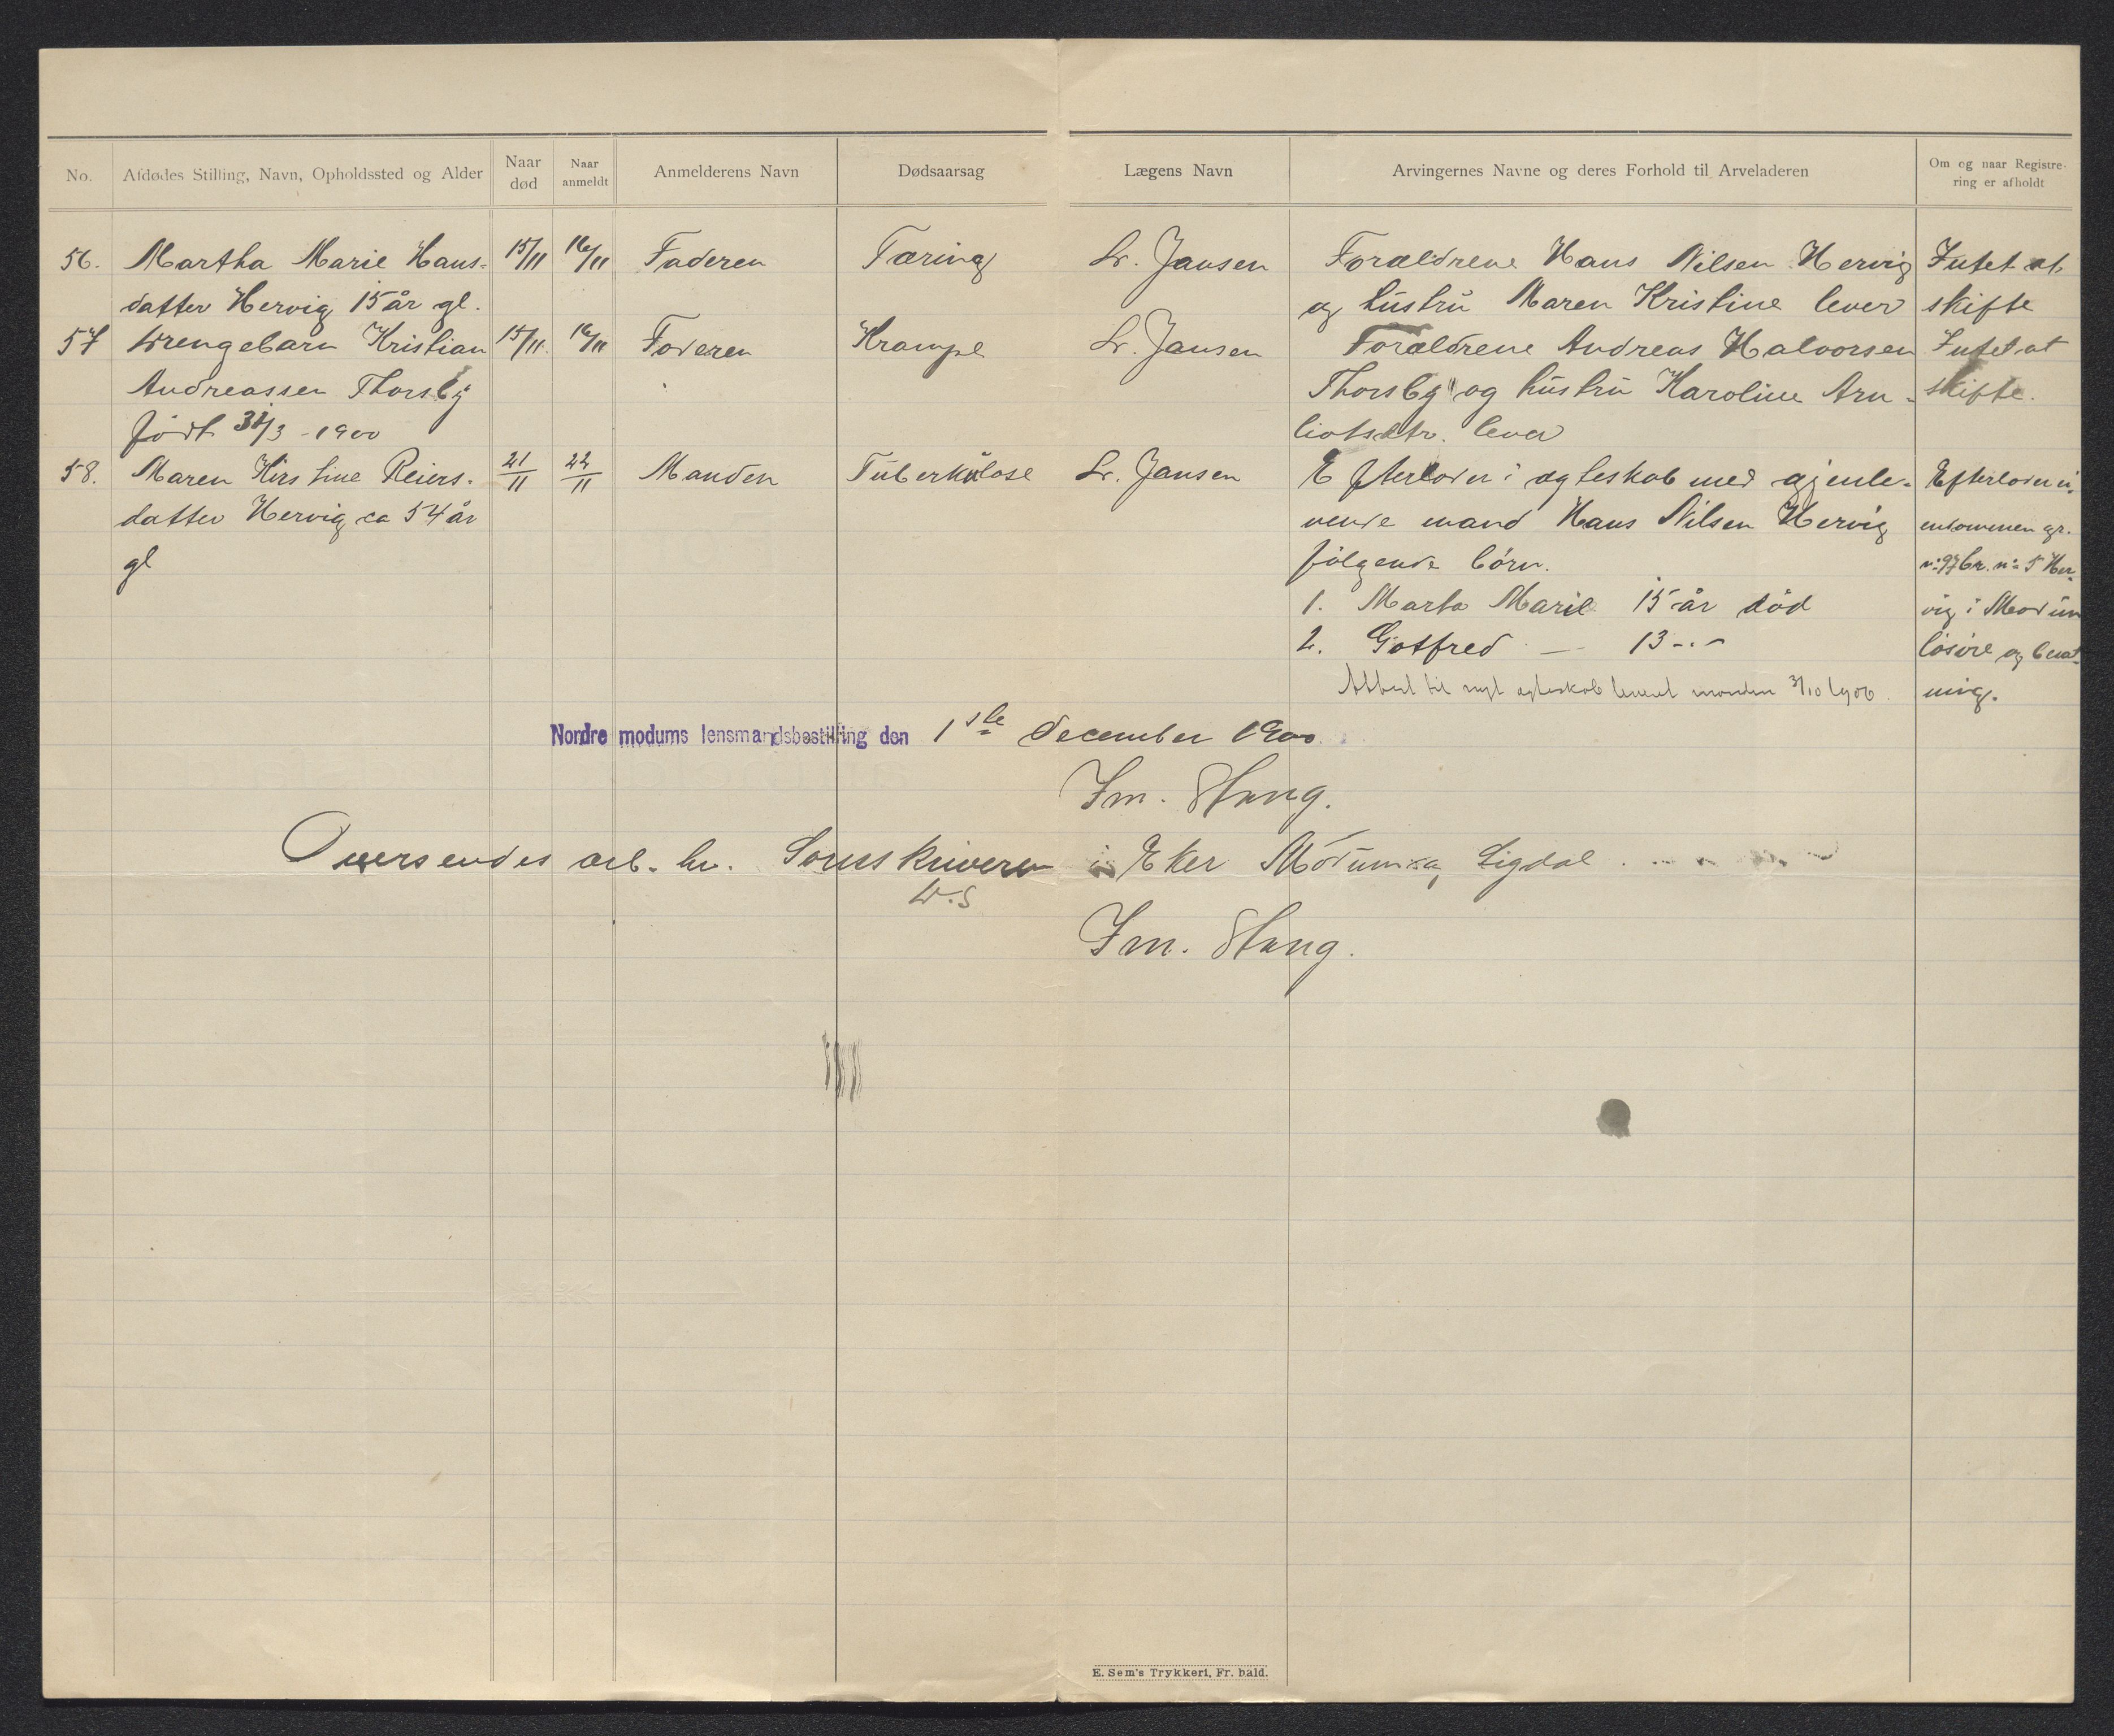 No.
Afdødes Stilling, Navn, Opholdssted og Alder
Naar død
Naar anmeldt
Anmelderens Navn
Dødsaarsag
Lægens Navn
Arvingernes Navne og deres Forhold til Arveladeren
Om og naar Registrering er afholdt
56. Martha Marie Hans- 15/11 16/11 Faderen Tæring Dr. Jansen Forældrene Hans Nilsen Hervig Intet at
datter Hervig 15 år gl. og hustru Maren Kristine lever skifte
57 Drengebarn Kristian 15/11. 16/11 Faderen Krampe Dr. Jansen Forældrene Andreas Halvorsen Intet at
Andreassen Thorsby Thorsby og hustru Karoline Arn- skifte.
født 31/3 - 1900 liotsdtr. lever
58. Maren Kirstine Reiers- 21/11 22/11 Manden Tuberkulose Dr. Jansen Efterlader i ægteskab med gjenle- Efterlader ei-
datter Hervig ca 54 år vende mand Hans Nilsen Hervig endommen gr.
gl følgende börn. no 97 br. no 5 Her-
1. Marta Marie 15 år død vig i Modum
2. Gotfred — 13 - . - løsøre og besæt-
Attest til nyt egteskab leveret manden 3/10 1906. ning.
Nordre modums lensmandsbestilling den 1ste december 1900.
Im. Stang.
Oversendes ærb. hr. Sorenskriveren i Eker Modum og Sigdal
D.S
Im. Stang.
E. Sem's Trykkeri, Fr. hald.